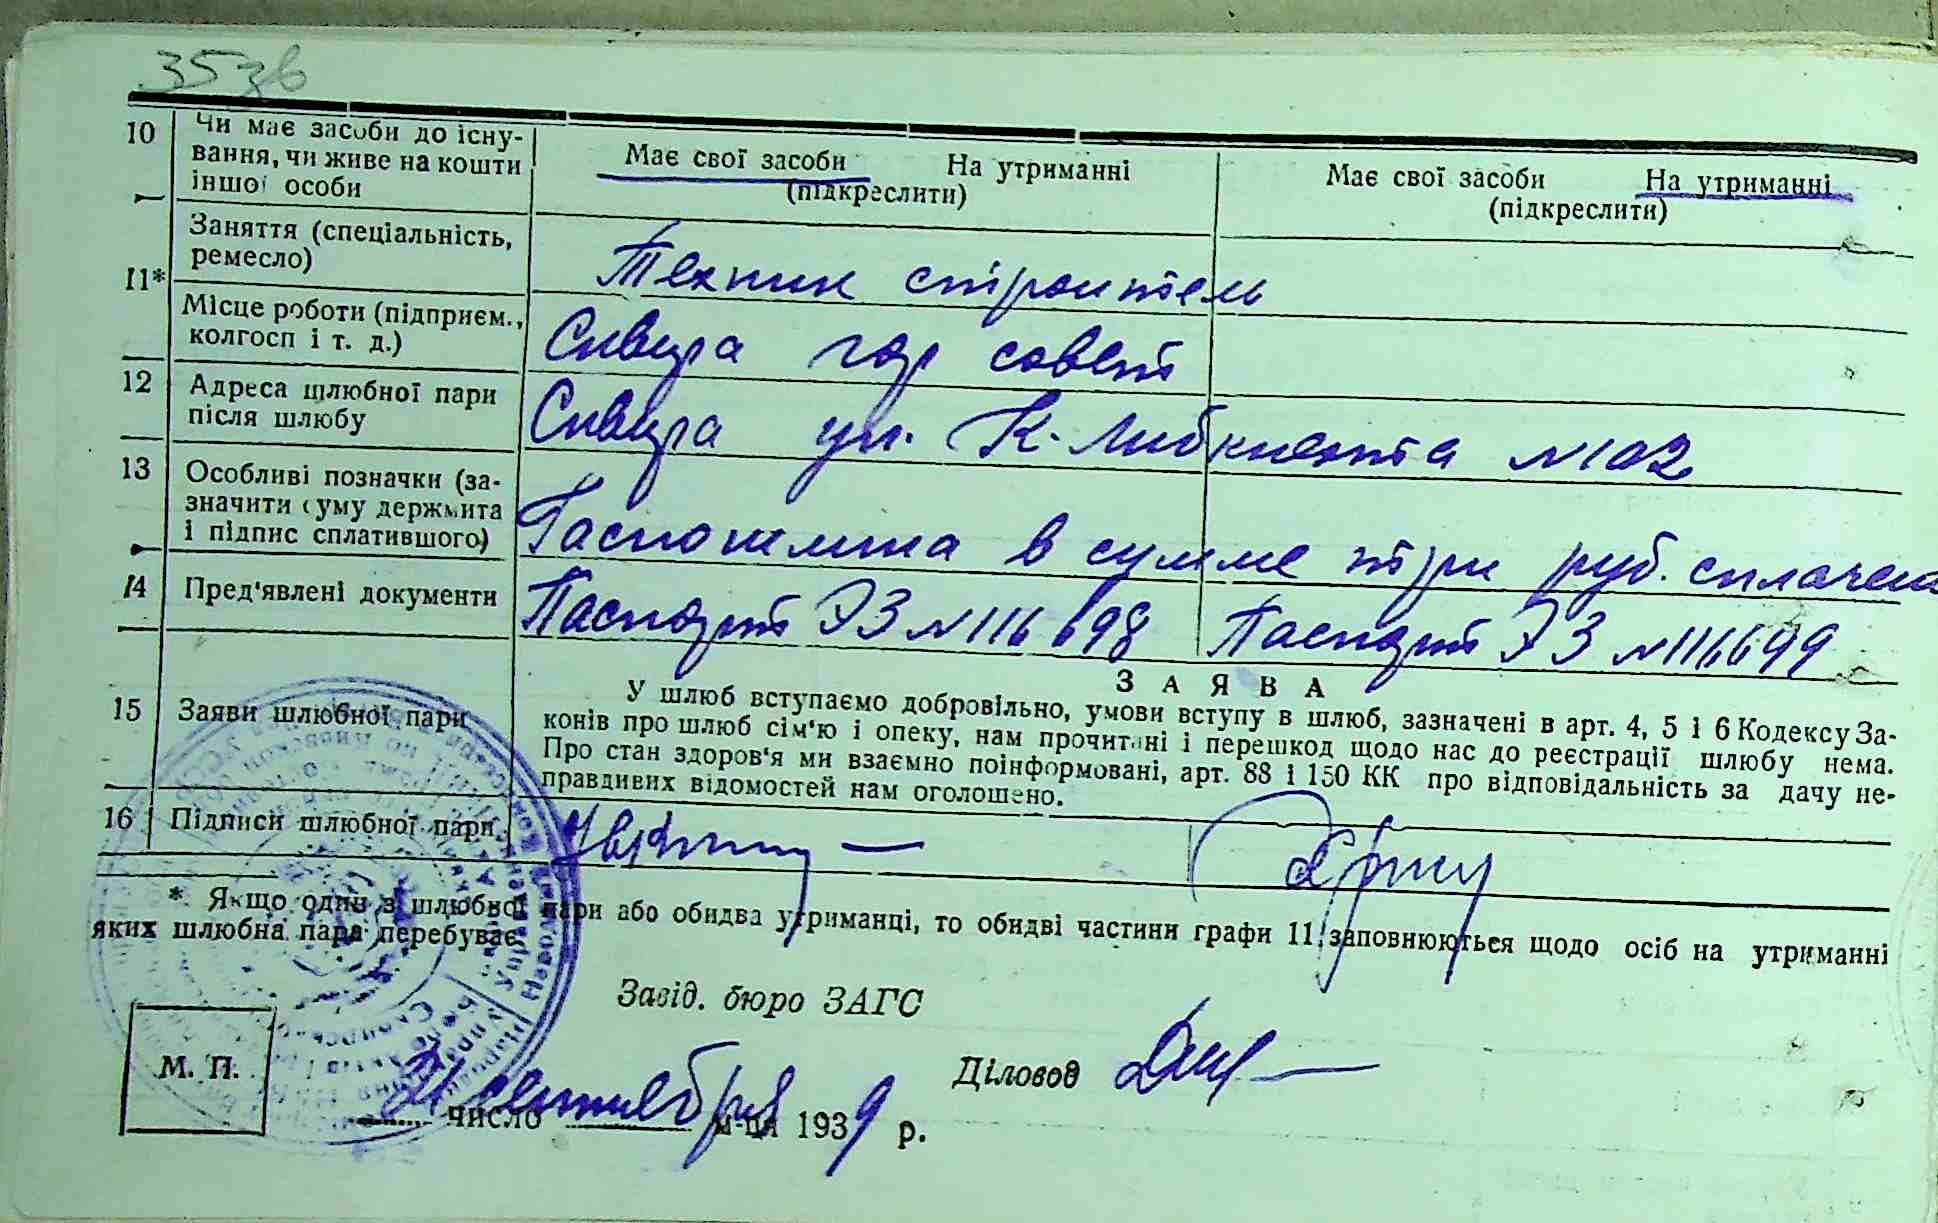 353в
10 Чи має засоби до існу-
вання, чи живе на кошти
іншої особи
Має свої засоби На утриманні
(підкреслити)
Має свої засоби На утриманні
(підкреслити)
11*
Заняття (спеціальність,
ремесло)
Техник строитель
Місце роботи (підприєм.,
колгосп і т. д.)
Сквира гор совет
12 Адреса шлюбної пари
після шлюбу
Сквира ул. К. Либкнехта №102
13 Особливі позначки (за-
значити суму держмита
і підпис сплатившого)
Госпошлина в сумме три руб.
14 Пред'явлені документи
Паспорт ЭЗ №116698 Паспорт ЭЗ №116699
15 Заяви шлюбної пари
ЗАЯВА
У шлюб вступаємо добровільно, умови вступу в шлюб, зазначені в арт. 4, 5 і 6 Кодексу За-
конів про шлюб сім'ю і опеку, нам прочитані і перешкод щодо нас до реєстрації шлюбу нема.
Про стан здоров'я ми взаємно поінформовані, арт. 88 і 150 КК про відповідальність за дачу не-
правдивих відомостей нам оголошено.
16 Підписи шлюбної пари
* Якщо один з шлюбної пари або обидва утриманці, то обидві частини графи 11 заповнюються щодо осіб на утриманні
яких шлюбна пара перебуває
Завід. бюро ЗАГС
М. П.
Діловод
21 сентября
число м-ця 1939 р.